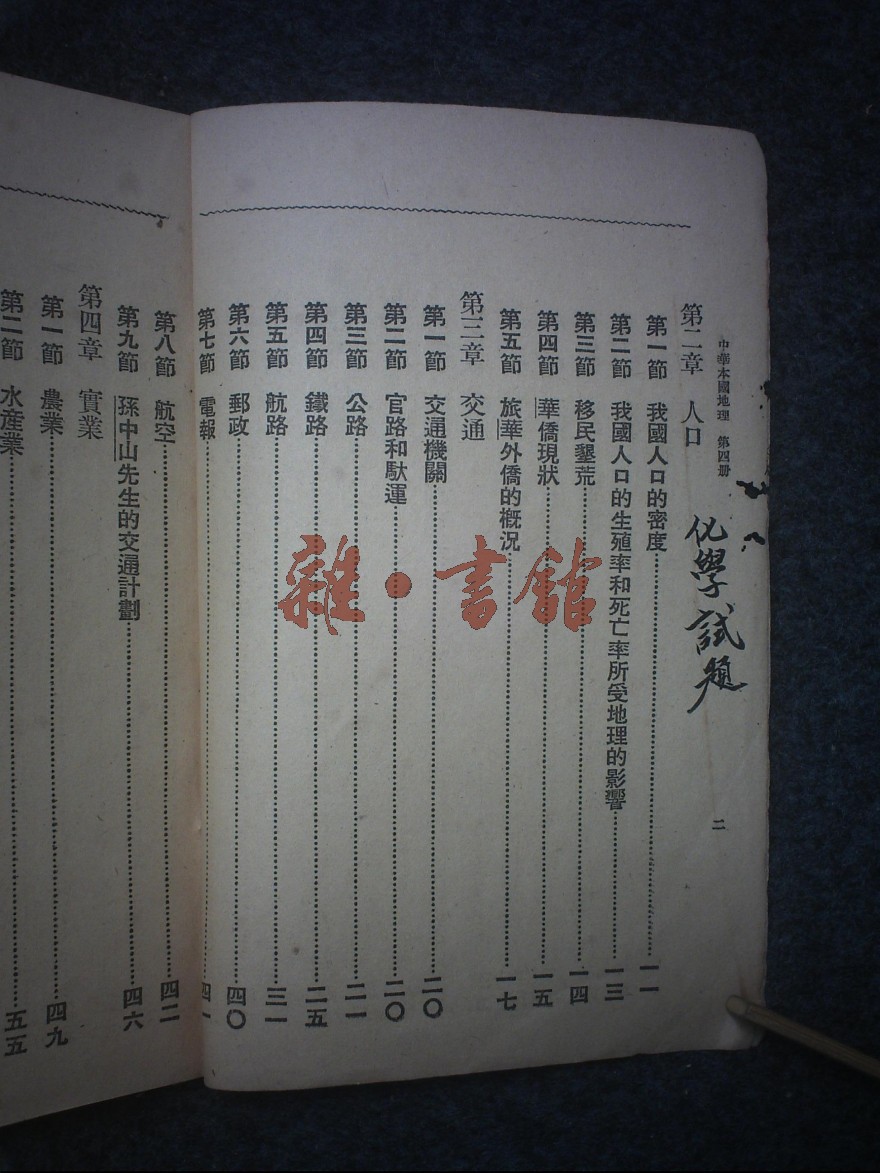 中華本國地理 第四册
二
化學試題
第二章 人口
第一節 我國人口的密度 一一
第二節 我國人口的生殖率和死亡率所受地理的影響 一三
第三節 移民墾荒 一四
第四節 華僑現狀 一五
第五節 旅華外僑的概況 一七
第三章 交通
第一節 交通機關 二〇
第二節 官路和馱運 二〇
第三節 公路 二一
第四節 鐵路 二五
第五節 航路 三一
第六節 郵政 四〇
第七節 電報 四一
第八節 航空 四二
第九節 孫中山先生的交通計劃 四六
第四章 實業
第一節 農業 四九
第二節 水產業 五五
雜·書館